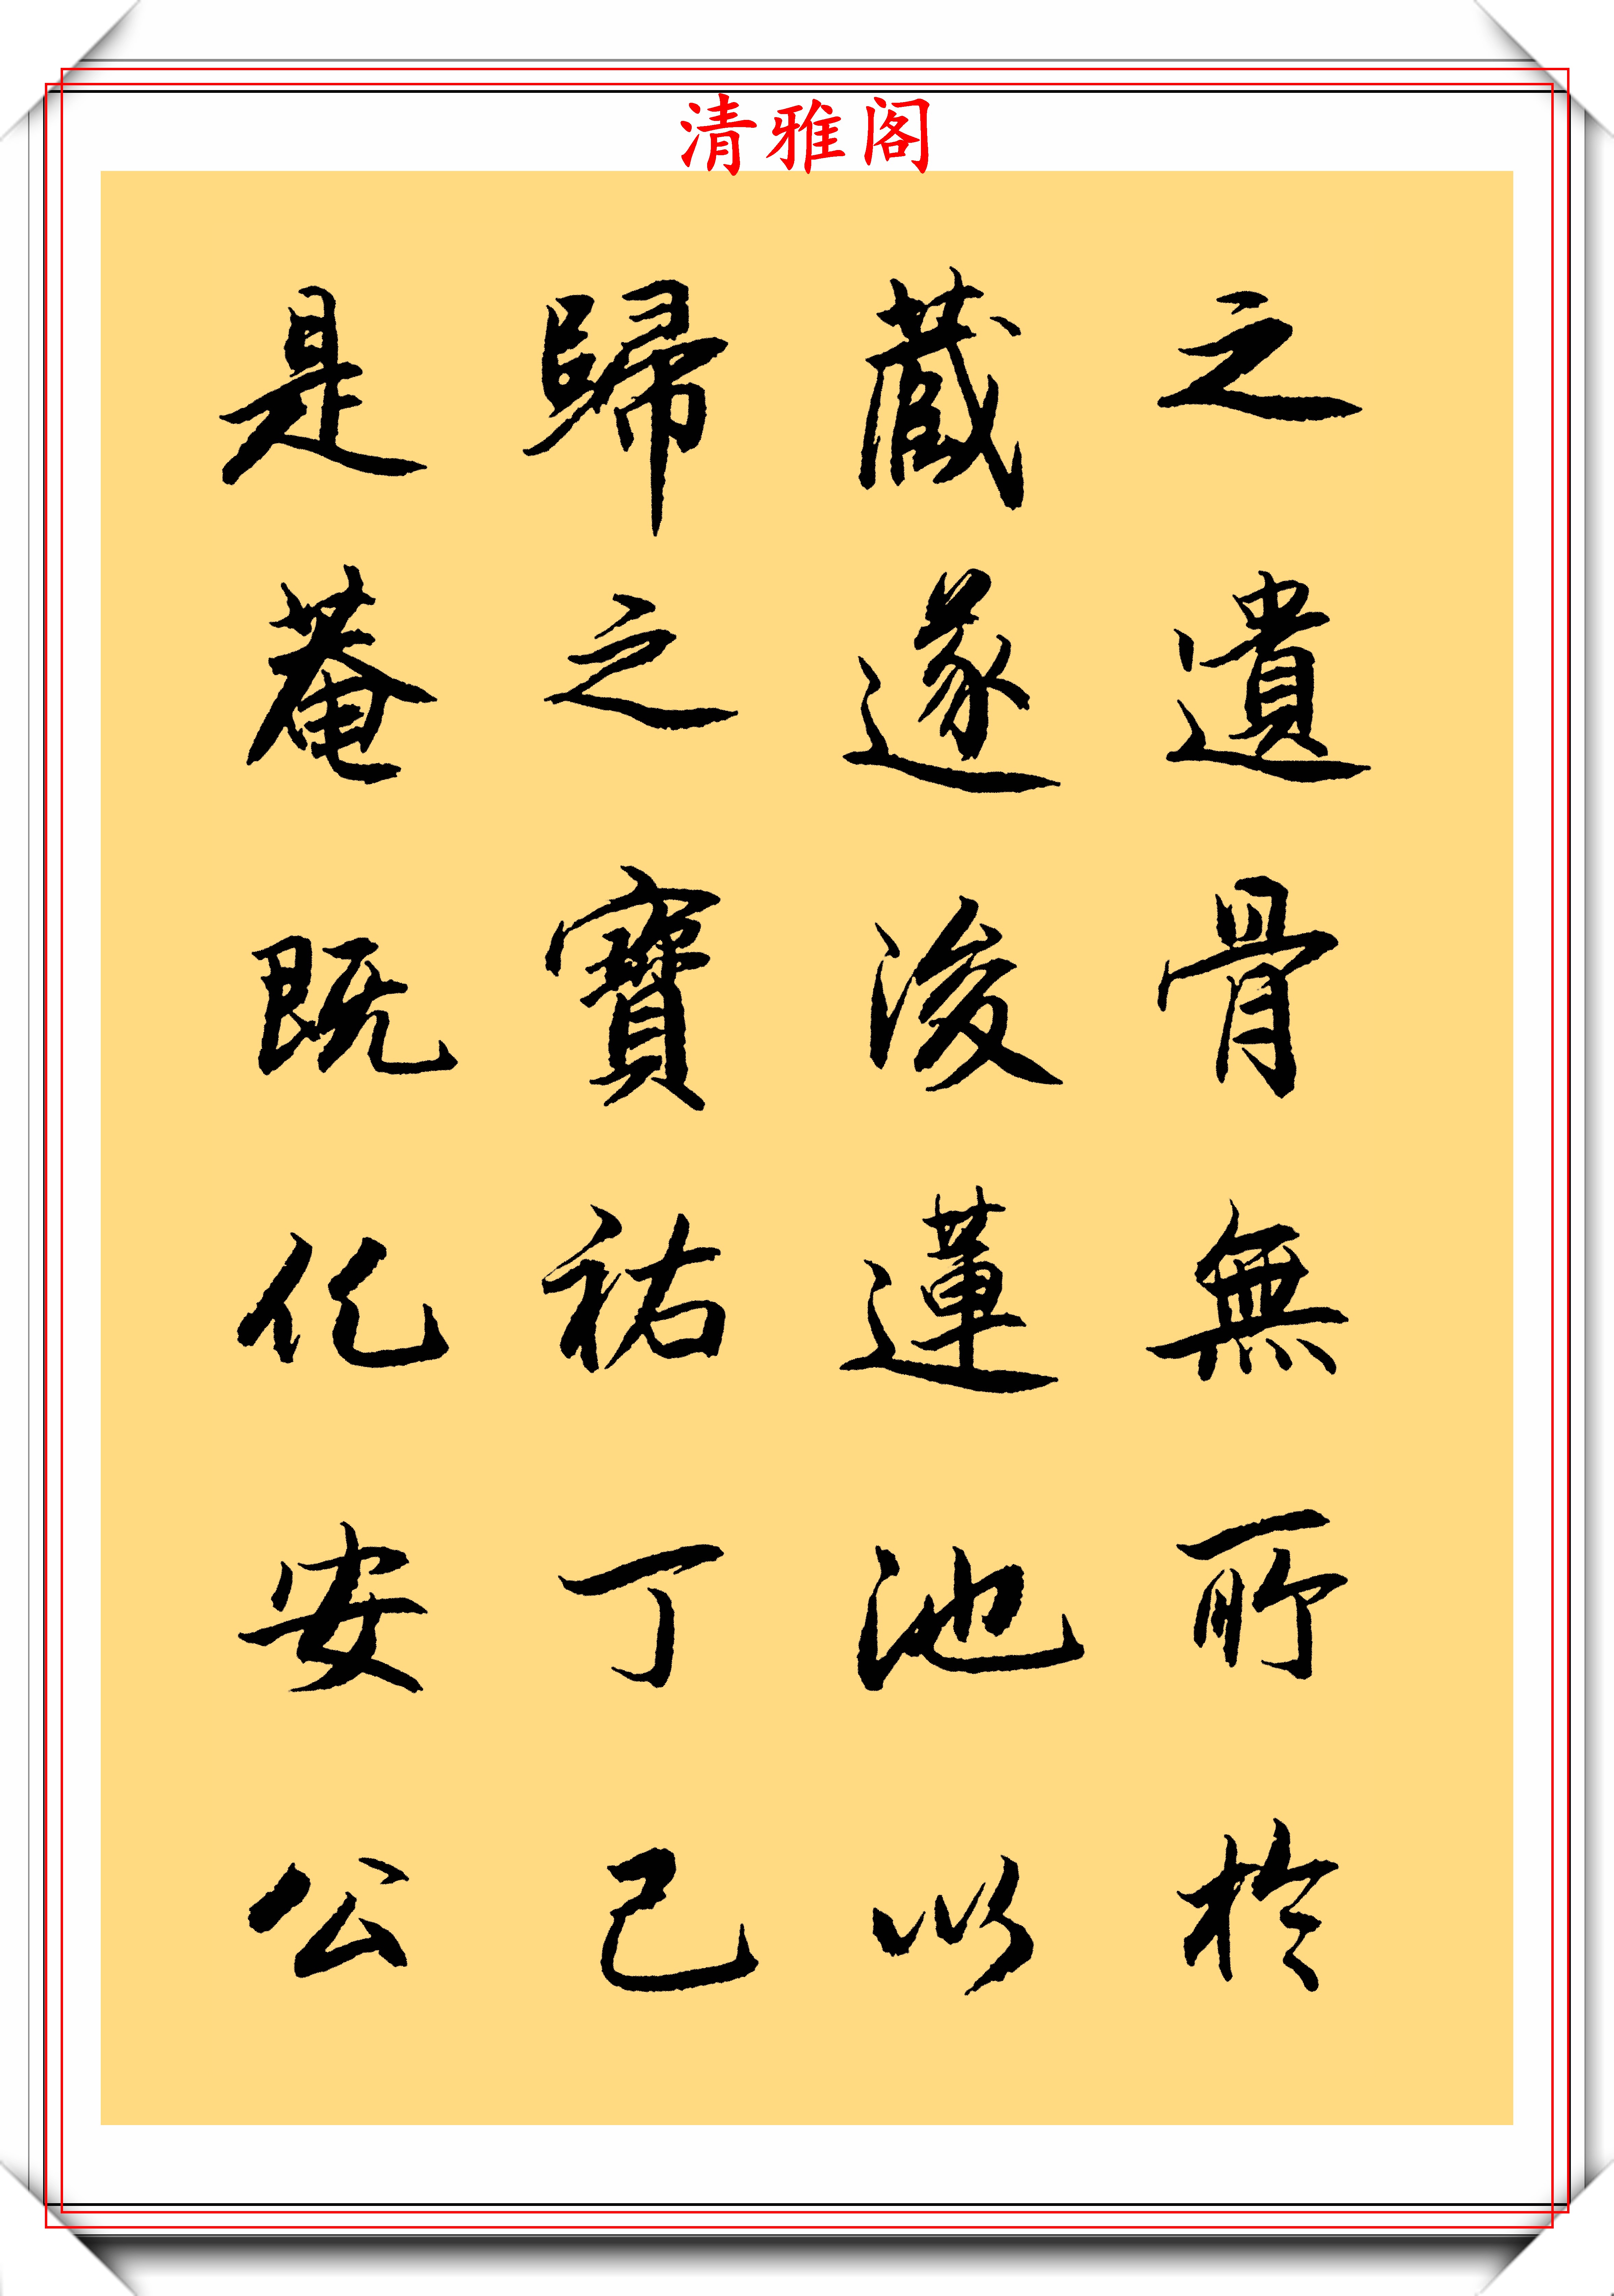 清雅阁
之遺骨無所於
藏遂浚蓮池以
歸之寶祐丁已
是菴既化安公